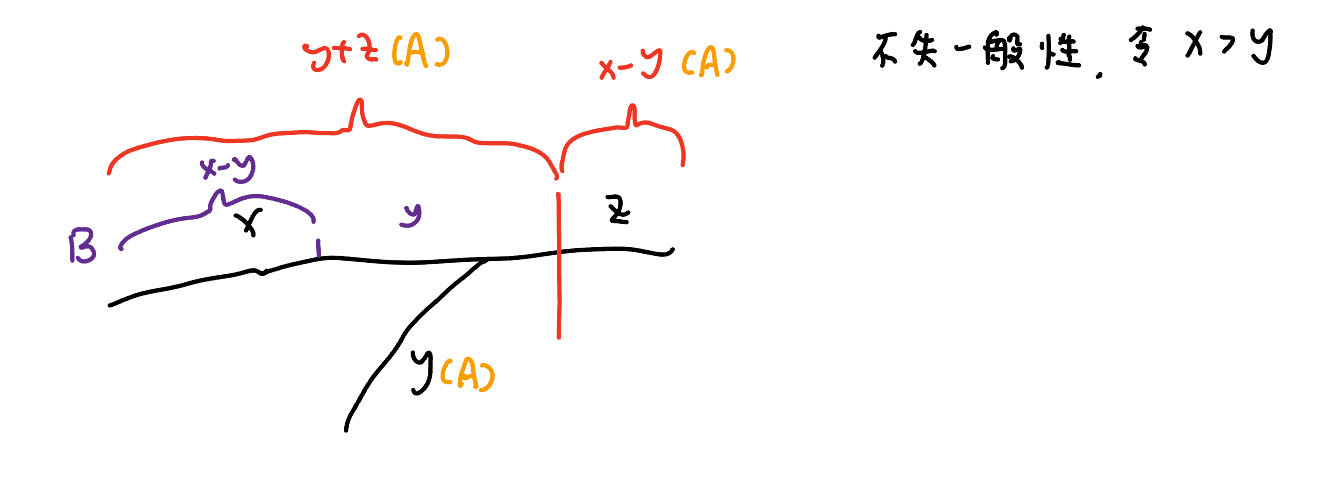 y+z (A)
x-y (A)
不失一般性, 令 x > y
x-y
x
y
z
B
y (A)